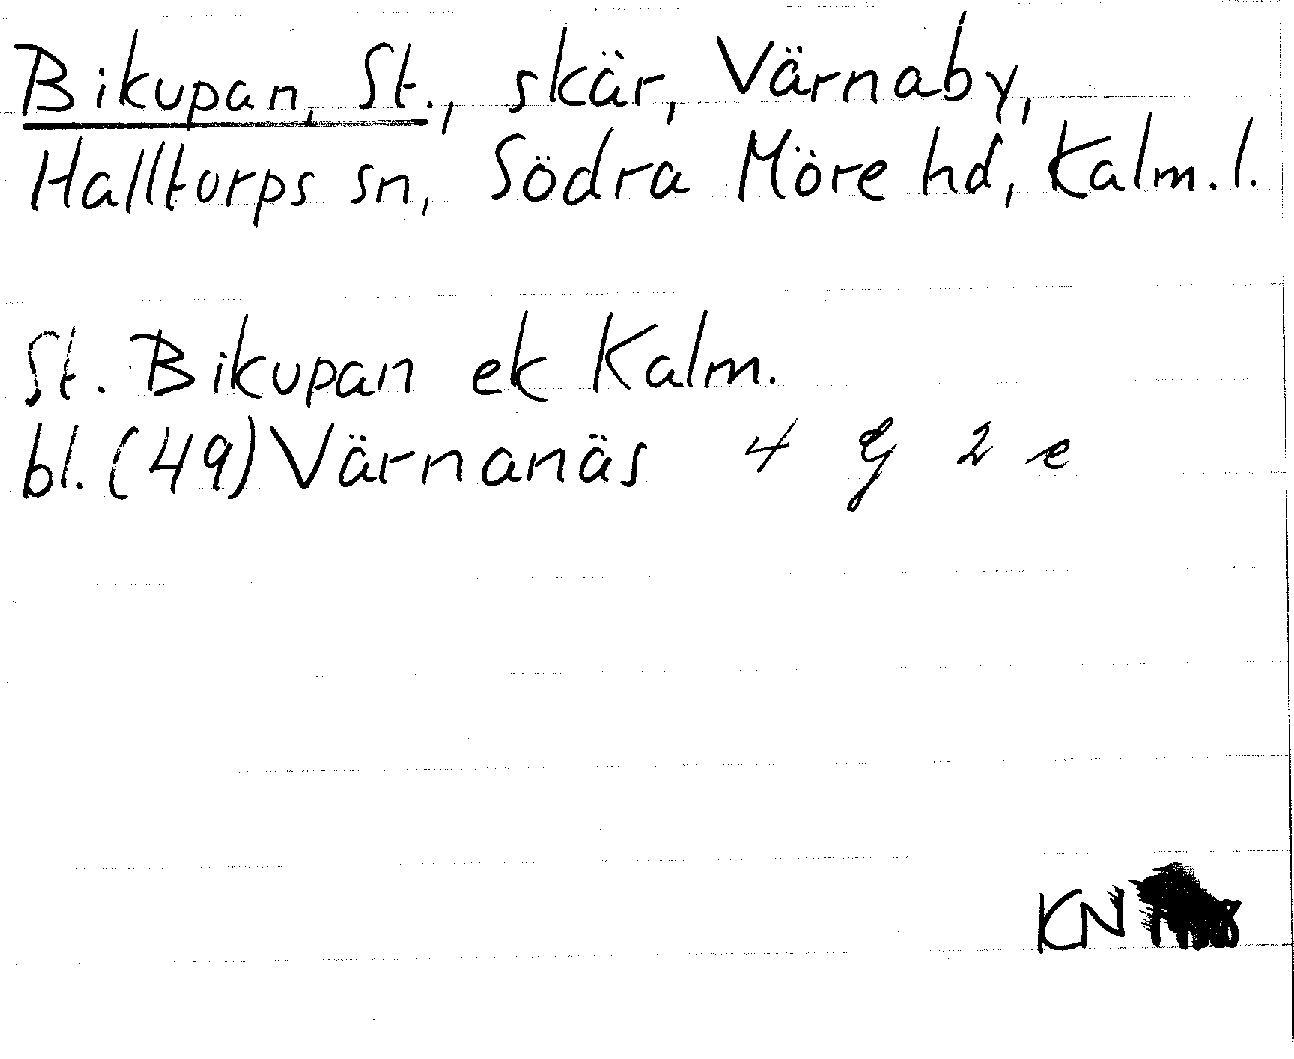 Bikupan, St., skär, Värnaby,
Halltorps sn, Södra Möre hd, Kalm. l.
St. Bikupan ek Kalm.
bl. (49) Värnanäs 4 g 2 e
KN